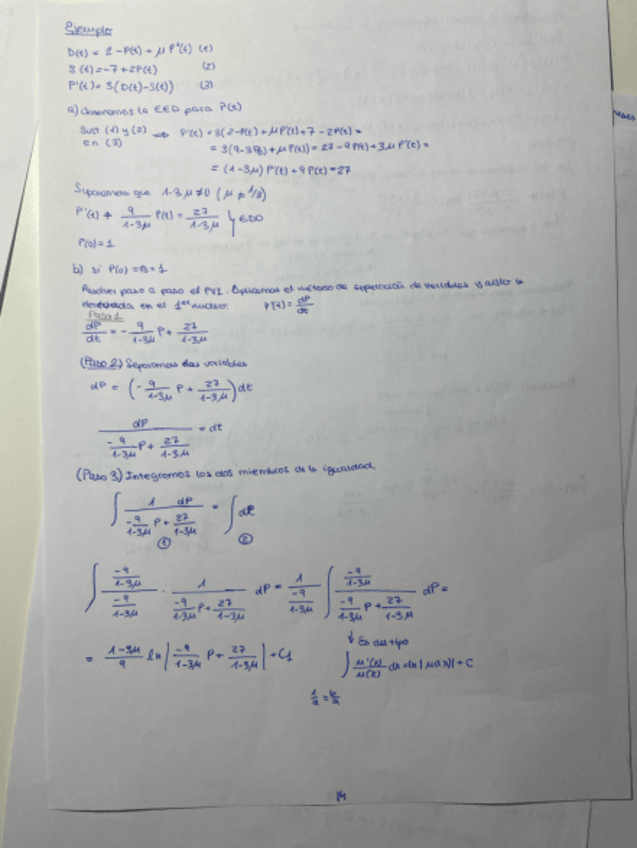 Ejemplo
D(t) = 2 - P(t) + μ P'(t) (1)
S(t) = -7 + 2P(t) (2)
P'(t) = 3(D(t) - S(t)) (3)
a) Obtenemos la EDO para P(t)
Sust (1) y (2) en (3) ⇒ P'(t) = 3(2 - P(t) + μP'(t) + 7 - 2P(t) =
= 3(9 - 3P(t) + μP'(t)) = 27 - 9P(t) + 3μP'(t) =
= (1-3μ) P'(t) + 9P(t) = 27
Suponemos que 1-3μ ≠ 0 (μ ≠ 1/3)
P'(t) + 9/(1-3μ) P(t) = 27/(1-3μ) } EDO
P(0) = 1
b) si P(0) = P0 = 1
Resolver paso a paso el PVI. Aplicamos el método de separación de variables y aislar la
derivada en el 1er miembro. P'(t) = dP/dt
Paso 1
dP/dt = - 9/(1-3μ) P + 27/(1-3μ)
(Paso 2) Separamos las variables
dP = (- 9/(1-3μ) P + 27/(1-3μ)) dt
dP / (-9/(1-3μ) P + 27/(1-3μ)) = dt
(Paso 3) Integramos los dos miembros de la igualdad
∫ 1 dP / (-9/(1-3μ) P + 27/(1-3μ)) = ∫ dt
① ②
∫ (-9/(1-3μ)) / (-9/(1-3μ)) · 1 / (-9/(1-3μ) P + 27/(1-3μ)) dP = 1 / (-9/(1-3μ)) ∫ (-9/(1-3μ)) / (-9/(1-3μ) P + 27/(1-3μ)) dP =
↓ Es del tipo
= (1-3μ)/9 ln | -9/(1-3μ) P + 27/(1-3μ) | + C1
∫ μ'(x)/μ(x) dx = ln | μ(x) | + C
14